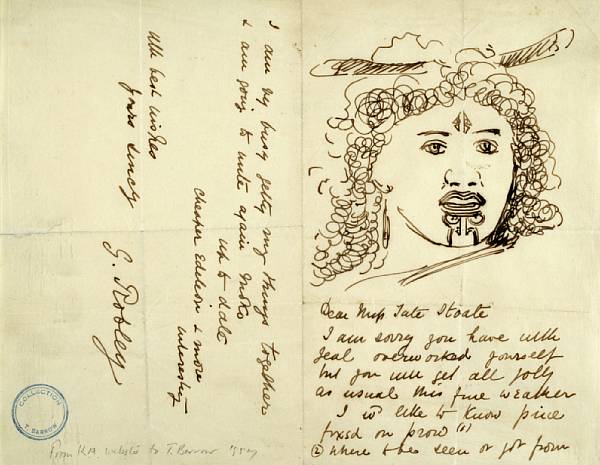 Dear Miss Tate Stoate
I am sorry you have with
zeal overworked yourself
but you will get all jolly
as usual this fine weather
I wd like to know price
fixed on prow (1)
(2) where seen or got from
I am vy busy getty my things together
& am going to write again Moko
up to date
cheaper edition & more
interesting
With best wishes
yours sincly
G. Robley
COLLECTION
T. BARROW
From K.A. Webster to T. Barrow